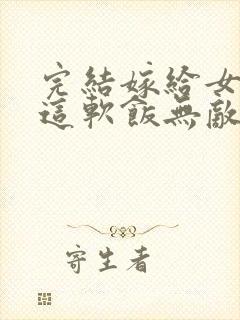 完結嫁給女
這軟飯無敵
寄生者